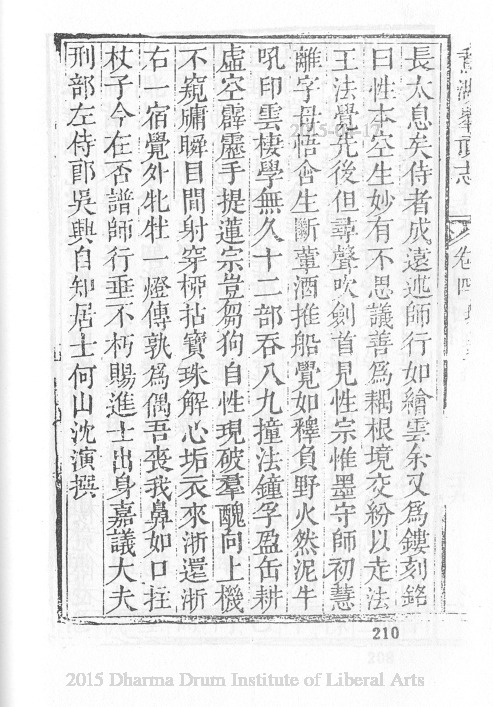 長太息矣侍者成遠述師行如繪雲余又爲鏤刻銘
曰性本空生妙有不思議善爲耦根境交紛以走法
王法覺先後但尋聲吹劍首見性宗惟墨守師初慧
離字母悟會生斷葷酒推船覺如釋負野火然泥牛
吼印雲棲學無久十二部吞八九撞法鐘孚盈缶耕
虛空霹靂手提蓮宗豈芻狗自性現破羣醜向上機
不窺牖瞬目間射穿栁拈寶珠解心垢衣來浙還浙
右一宿覺外牝牡一燈傳孰爲偶吾喪我鼻如口拄
杖子今在否譜師行垂不朽賜進士出身嘉議大夫
刑部左侍郎吳興自知居士何山沈演撰
卷四
210
2015 Dharma Drum Institute of Liberal Arts